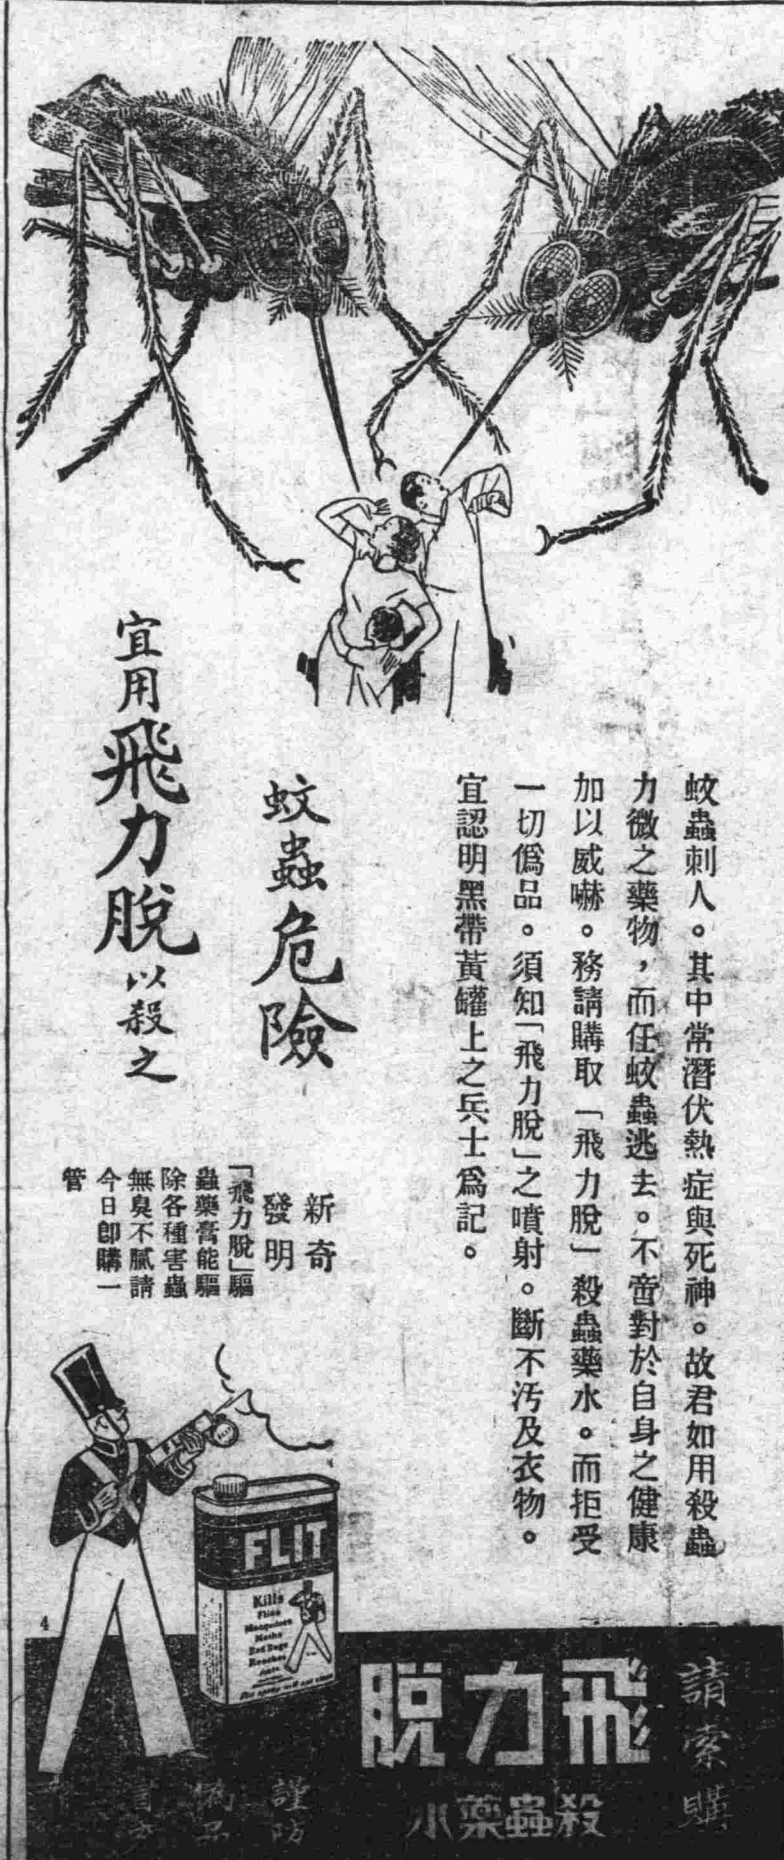 蚊蟲刺人。其中常潛伏熱症與死神。故君如用殺蟲
力微之藥物，而任蚊蟲逃去。不啻對於自身之健康
加以威嚇。務請購取「飛力脫」殺蟲藥水。而拒受
一切僞品。須知「飛力脫」之噴射。斷不汚及衣物。
宜認明黑帶黃罐上之兵士爲記。
蚊蟲危險
宜用飛力脫以殺之
新奇
發明
「飛力脫」驅
蟲藥膏能驅
除各種害蟲
無臭不膩請
今日卽購一
管
FLIT
FLIT
Kills
Flies
Mosquitoes
Moths
Bed Bugs
Roaches
Ants
4
請索購
飛力脫
殺蟲藥水
謹防
偽品